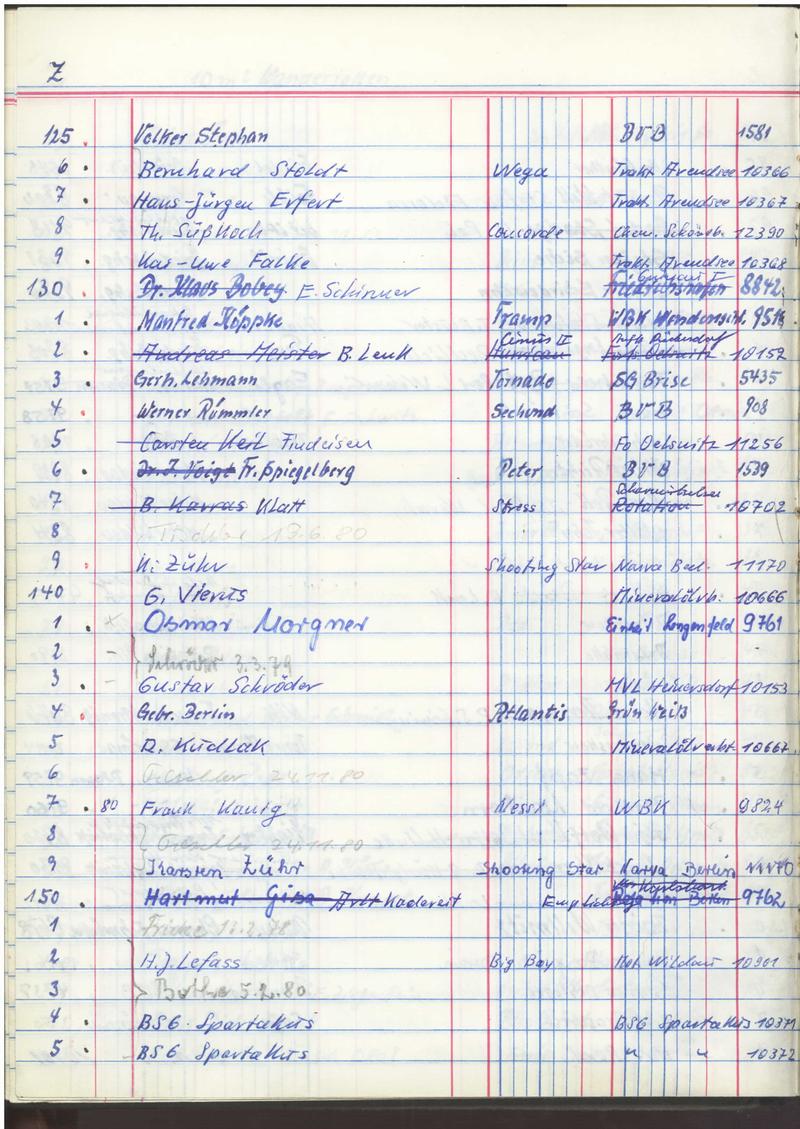 Z
125 . Volker Stephan BVB 1581
6 . Bernhard Stoldt Wega Trakt Arendsee 10366
7 . Hans-Jürgen Erfert Trakt. Arendsee 10367
8 Th. Süßkoch Concorde Chem. 12390
9 Kai-Uwe Falke Trakt. Arendsee 10368
130 . Dr. Klaus Bobey E. Schirmer Friedrichshagen 8842
1 . Manfred Köppke Tramp WBK
2 . Andreas Meister B. Lenk Hurrican Cirrus II 10152
3 . Gerh. Lehmann Tornado SG Brise 5435
4 . Werner Rümmler Seehund BVB 908
5 Carsten Keil Findeisen Fo Oelsnitz 11256
6 . Dr. J. Voigt Fr. Spiegelberg Peter BVB 1539
7 B. Karras Klatt Stress Rotation 10702
8 13.6.80
9 . K. Zühr Shooting Star Narva Berl. 11170
140 G. Vierus Mineralölvb. 10666
1 . Osmar Morgner Einheit Lengenfeld 9761
2 Schröder 3.3.79
3 . Gustav Schröder MVL Heinersdorf 10153
4 . Gebr. Berlin Atlantis Grün Weiß
5 R. Kudlak Mineralölverb. 10667
6 24.11.80
7 . 80 Frank Kanig Messi WBK 9824
8 24.11.80
9 Karsten Zühr Shooting Star Narva Berlin 11170
150 . Hartmut Gisa Artt Kadereit Berlin 9762
1 Fricke
2 . H. J. Lefass Big Boy Mot Wildau 10901
3 5.2.80
4 . BSG Spartakus BSG Spartakus 10371
5 . BSG Spartakus " " 10372